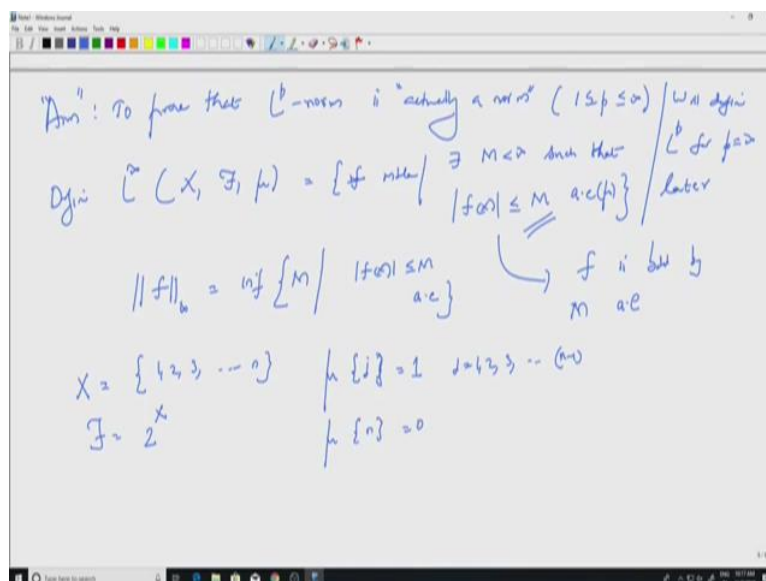 Note1 - Windows Journal
File Edit View Insert Actions Tools Help
"Aim": To prove that L^p-norm is "actually a norm" (1≤p≤∞) | Will define
L^p for p=∞
later
Define L^∞ (X, F, μ) = {f mble | ∃ M<∞ such that
|f(x)| ≤ M a.e(μ)}
f is bdd by
M a.e
||f||_∞ = inf {M | |f(x)| ≤ M
a.e}
X = {1, 2, 3, ... n} μ {j} = 1 j=1, 2, 3, ... (n-1)
F = 2^X μ {n} = 0
Type here to search